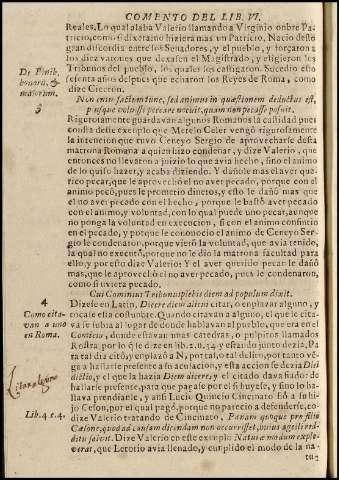 COMENTO DEL LIB. VI.
Reales. Lo qual alaba Valerio llamando a Virginio onbre Pa-
tricio, como si dixera no hiziera mas vn Patricio. Nacio deste
gran discordia entre los Senadores, y el pueblo, y forçaron a
los diez varones que dexasen el Magistrado, y eligieron los
Tribunos del pueblo, los quales los castigaron. Sucedio eño
sesenta años despues que echaron los Reyes de Roma, como
dize Ciceron.
Non enim factum tunc, sed animus in quæstionem deductus est,
plusque voluisse peccare nocuit, quam non peccasse profuit.
Rigurosamente guardavan algunos Romanos la castidad pues
consta deste exemplo que Metelo Celer vengò rigurosamente
la intencion que tuvo Ceneyo Sergio de aprovecharse desta
matrona Romana a quien hizo condenar, y dize Valerio, que
entonces no llevaron a juizio lo que avia hecho, sino el animo
de lo quiso hazer, y acaba diziendo. Y dañole mas el aver que-
rico pecar, que le aprovechó el no aver pecado, porque con el
animo pecó, pues le prometio dineros, y esto le dañó mas que
el no aver pecado con el hecho, porque le bastó aver pecado
con el animo, y voluntad, con lo qual puede vno pecar, aunque
no ponga la voluntad en execucion, si con el animo consintio
en el pecado, y porque se conocio el animo de Ceneyo Ser-
gio le condenaron, porque vieró la voluntad, que avia tenido,
la qual no executó, porque no le dio la matrona facultad para
ello, y por esto dize Valerio: Y el aver querido pecar le dañò
mas, que le aprovechó el no aver pecado, pues le condenaron,
como si uviera pecado.
Cui Cominius Tribunus plebis diem ad populum dixit.
Dizese en Latin, Dicere diem alicui citar, o enplazar alguno, y
tocase esta costunbre. Quando citavan a alguno, el que le cita-
va se subia al lugar de donde hablavan al pueblo, que era en el
Comicio, donde estavan unas catedras, o pulpitos llamados
Rostra, por lo q̃ se dize en lib. 2. n. 54. y estando junto dezia, Pa
ra tal dia citó, y enplazó a N, por tal, o tal delito, por tanto vé-
ga a hallarse presente a su acusacion, y esta accion se dezia Diei
dictio, y el que la hazia Diem dicere, y el citado dava fiador de
hallarse presente, para que pagase por el si huyese, y sino lo ha-
llava prendianle, y ansi Lucio Quincio Cincinato fió a su hi-
jo Ceson, por el qual pagó, porque no parecio a defenderse, co-
mo dize Valerio tratando de Cincinato. Pœnam quoque pro filio
Cæsone, quod ad causam dicendam non occurrisset, huius agelli red-
ditu solvit. Dize Valerio en este exemplo Naturæ modum exple-
verat, que Letorio avia llenado, y cumplido el modo de la na-
tu-
De Finib.
bonorũ, &
malorum.
3
4
Como cita-
van a uno
en Roma.
Lib. 4. c. 4.